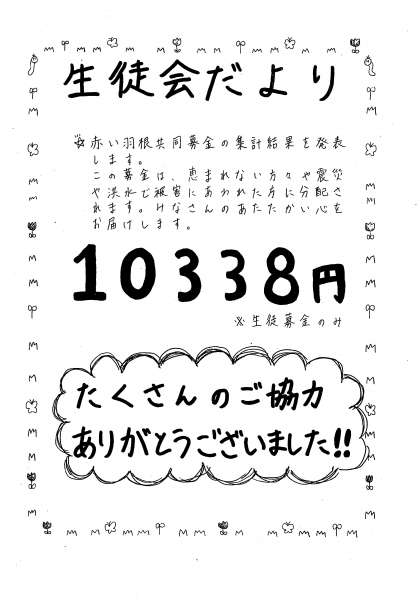 生徒会だより
☆赤い羽根共同募金の集計結果を発表
します。
この募金は、恵まれない方々や震災
や洪水で被害にあわれた方に分配さ
れます。みなさんのあたたかい心を
お届けします。
10338円
※生徒募金のみ
たくさんのご協力
ありがとうございました!!